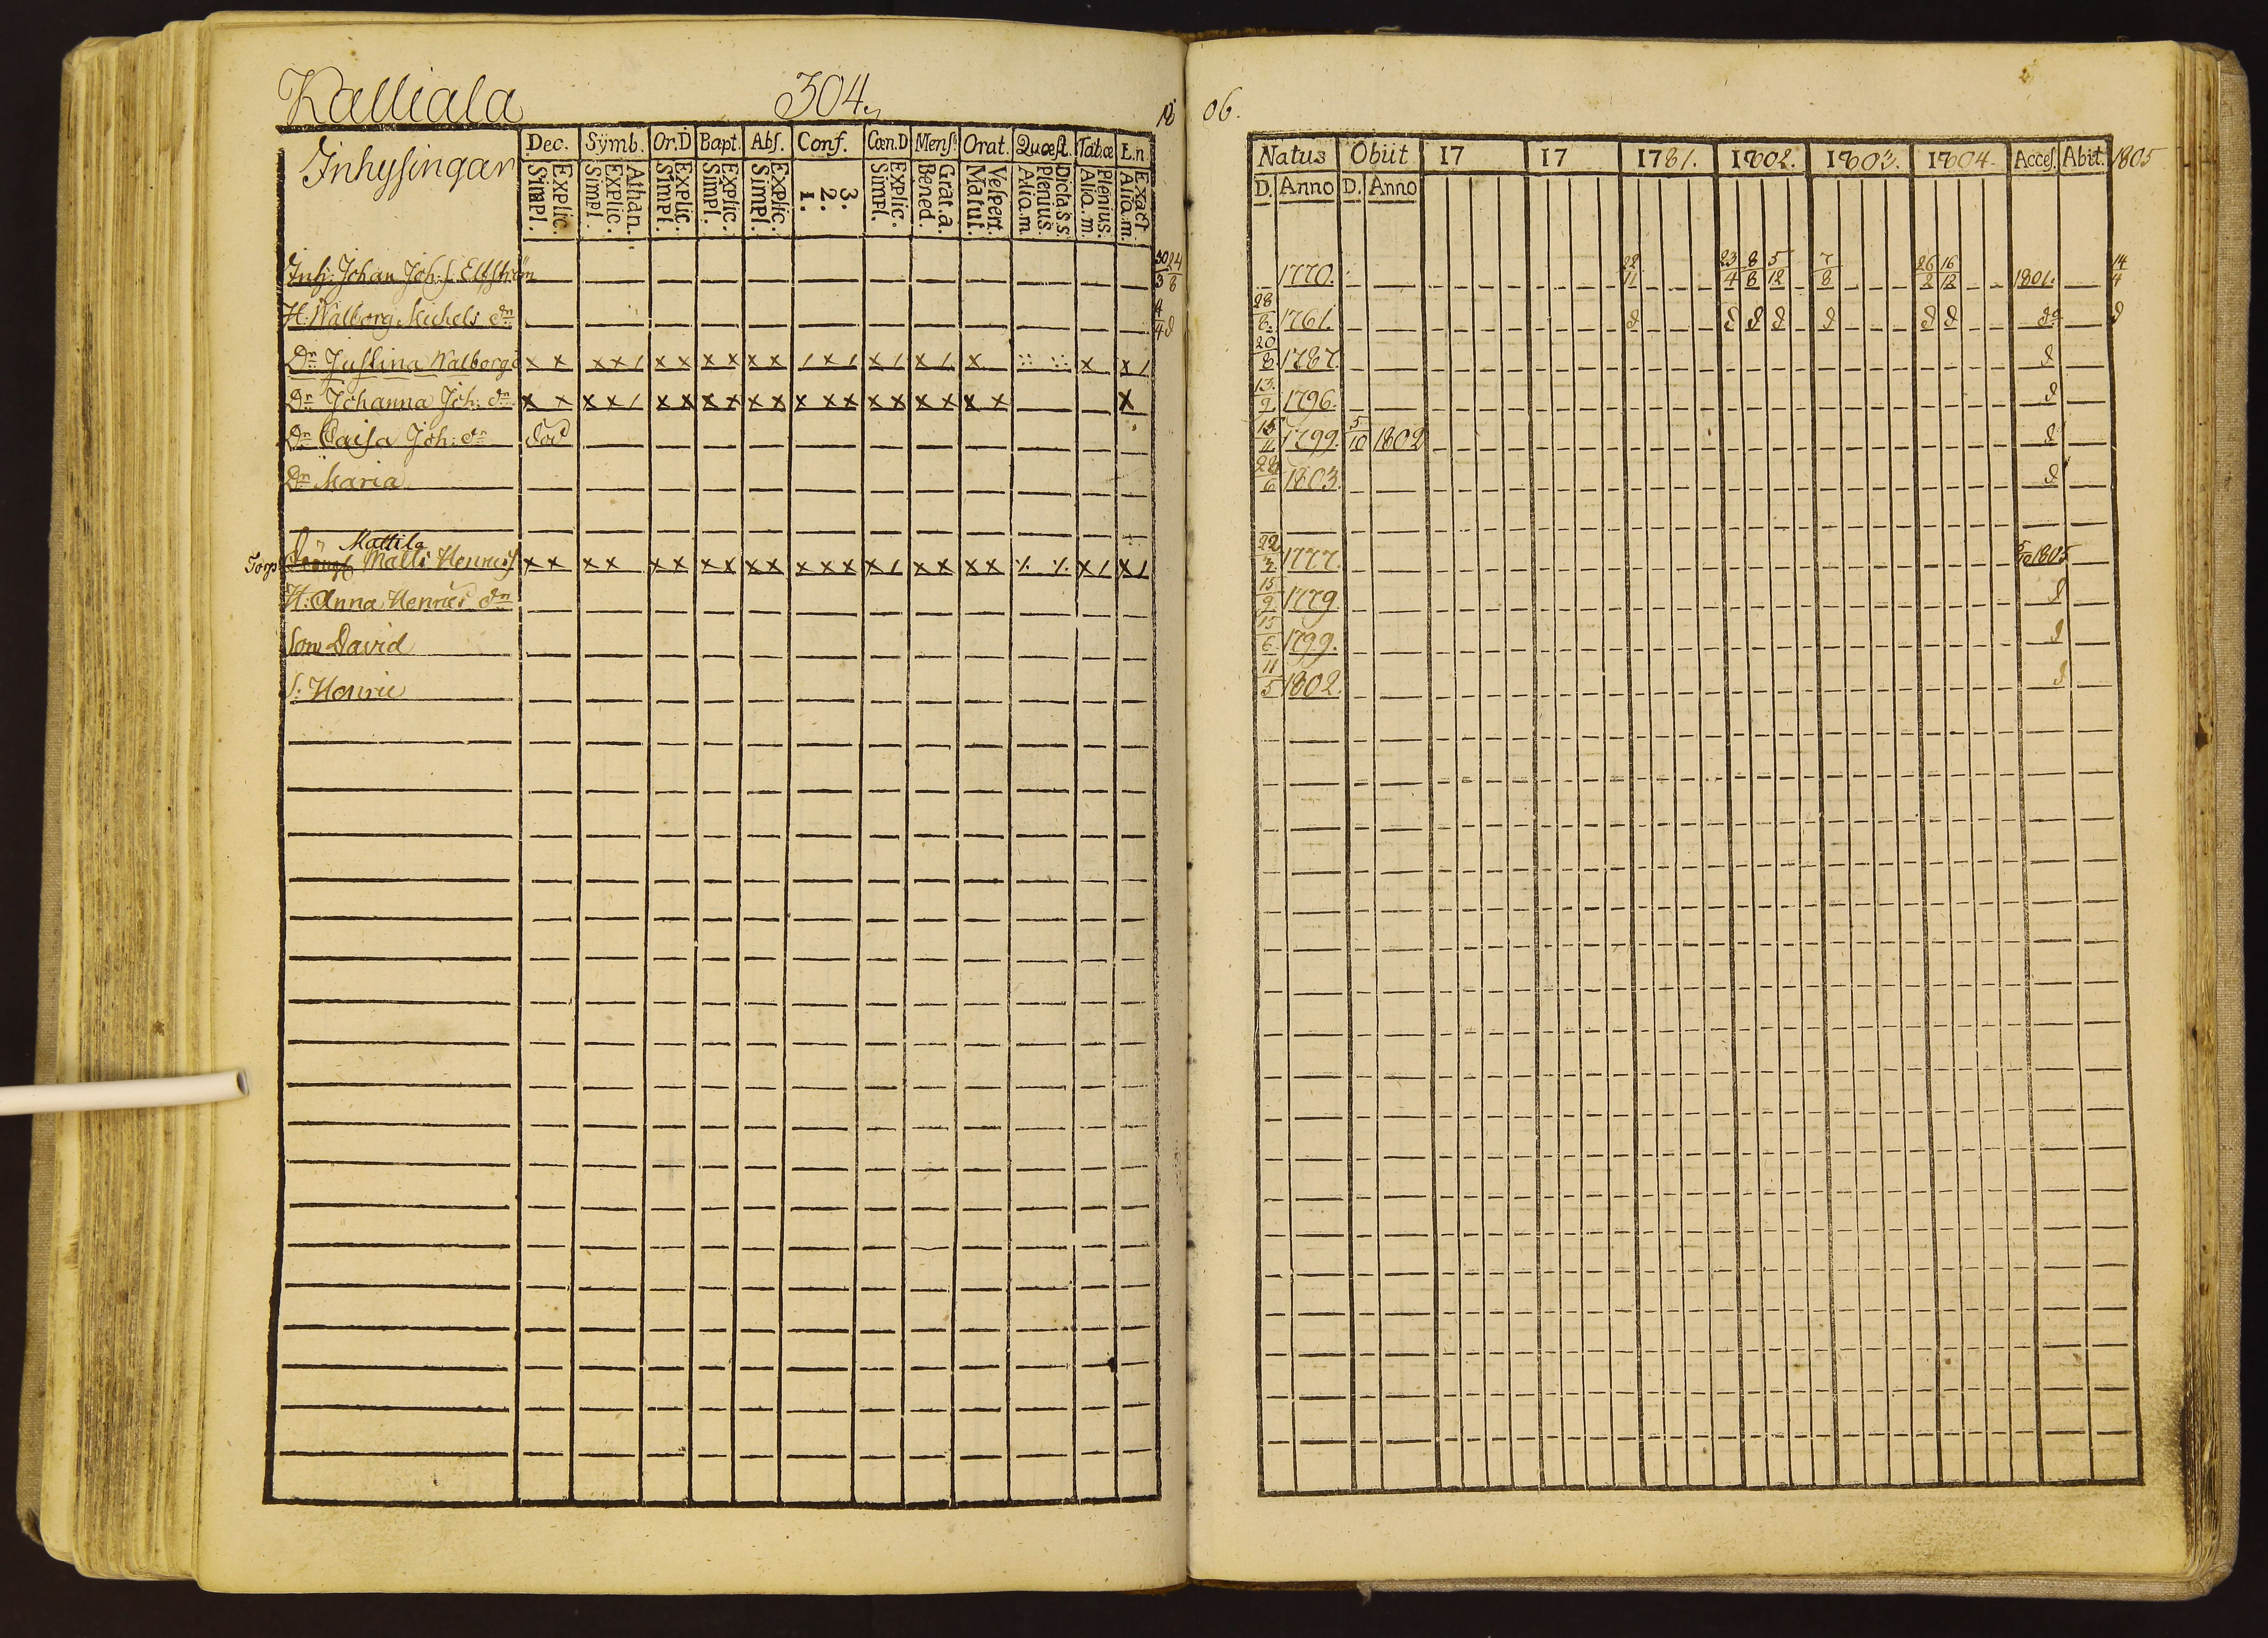 Kalliala 304.
1806.
Inhysingar Dec. Symb. Or.D Bapt. Abs. Conf. Cœn.D Mens. Orat. Quæst. Tab.œ E.n.
Explic. Simpl. Athan. Explic. Simpl. Explic. Simpl. Explic. Simpl. Explic. Simpl. 3. 2. 1. Explic. Simpl. Grat.a. Bened. Vespert. Matut. Dicta s.s. Plenius. Alio.m. Plenius. Alio.m. Exact. Alio.m.
Natus Obiit 17 17 1781. 1802. 1803. 1804. Acces. Abit. 1805
D. Anno D. Anno
Inh: Johan Joh: s. Elfström 30/3 24/8 1770. 22/11 23/4 8/8 5/12 7/8 26/2 16/12 1801. 14/4
H: Walborg Michels dr 4/4 d 28/8. 1761. d d d d d d d do d
Dr Justina Walborg x x x x / x x x x x x / x / x / x / x x x / 20/8. 1787. d
Dr Johanna Joh: dr x x x x / x x x x x x x x x x x x x x x x 13/9. 1796. d
Dr Caisa Joh: dr död 15/11 1799. 5/10 1802 d
Dr Maria 28/6 1803. d
Mattila
Torp Matti Henrics x x x x x x x x x x x x x x / x x x x ⁒ ⁒ x / x / 22/3. 1777. 5/10 1805
H: Anna Henrics dr 15/9. 1779. d
Son David 15/6. 1799. d
S: Henric 11/5 1802. d